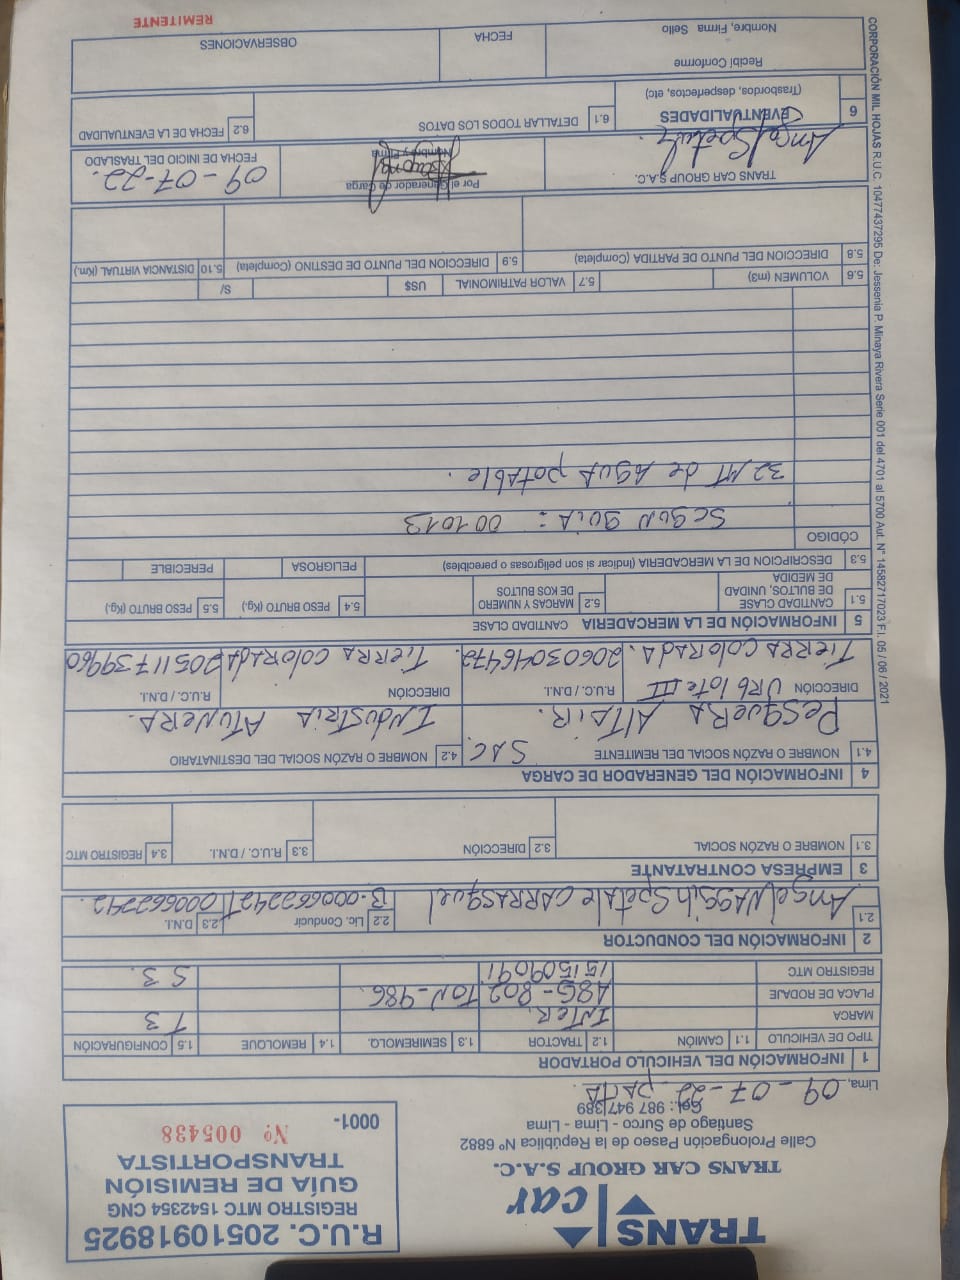 TRANS car
TRANS CAR GROUP S.A.C.
Calle Prolongación Paseo de la República Nº 6882
Santiago de Surco - Lima - Lima
Cel.: 987 947 389
R.U.C. 20510918925
REGISTRO MTC 1542354 CNG
GUÍA DE REMISIÓN
TRANSPORTISTA
0001- Nº 005438
Lima, 09 - 07 - 22
1 INFORMACIÓN DEL VEHICULO PORTADOR
TIPO DE VEHICULO 1.1 CAMIÓN 1.2 TRACTOR 1.3 SEMIREMOLQ. 1.4 REMOLQUE 1.5 CONFIGURACIÓN
MARCA INTER. T3
PLACA DE RODAJE A8G-802 TON-986.
REGISTRO MTC 151509091 S3.
2 INFORMACIÓN DEL CONDUCTOR
2.1 Angel NASSih Spetale CARRASQuel 2.2 Lic. Conducir B-000662242 2.3 D.N.I. 000662242.
3 EMPRESA CONTRATANTE
3.1 NOMBRE O RAZÓN SOCIAL 3.2 DIRECCIÓN 3.3 R.U.C. / D.N.I. 3.4 REGISTRO MTC
4 INFORMACIÓN DEL GENERADOR DE CARGA
4.1 NOMBRE O RAZÓN SOCIAL DEL REMITENTE SAC. 4.2 NOMBRE O RAZÓN SOCIAL DEL DESTINATARIO
PesqueRA AltAiR. INdustRiA AtuNeRA.
DIRECCIÓN URb lote III R.U.C. / D.N.I. DIRECCIÓN R.U.C. / D.N.I.
TieRRA coloRAdA. 20603046472. TieRRA coloRAdA 20511739960
5 INFORMACIÓN DE LA MERCADERIA CANTIDAD CLASE
5.1 CANTIDAD CLASE DE BULTOS, UNIDAD DE MEDIDA 5.2 MARCAS Y NUMERO DE KOS DE BULTOS 5.4 PESO BRUTO (Kg.) 5.5 PESO BRUTO (Kg.)
5.3 DESCRIPCION DE LA MERCADERIA (Indicar si son peligrosas o perecibles) PELIGROSA PERECIBLE
CÓDIGO
SegUN guiA: 001013
32 MT de AguA potAble.
5.6 VOLUMEN (m3) 5.7 VALOR PATRIMONIAL US$ S/
5.8 DIRECCION DEL PUNTO DE PARTIDA (Completa) 5.9 DIRECCION DEL PUNTO DE DESTINO (Completa) 5.10 DISTANCIA VIRTUAL (Km.)
TRANS CAR GROUP S.A.C. Por el Generador de Carga 09 - 07-22.
Angel Spetale Nombre y Firma FECHA DE INICIO DEL TRASLADO
6 EVENTUALIDADES (Trasbordos, desperfectos, etc) 6.1 DETALLAR TODOS LOS DATOS 6.2 FECHA DE LA EVENTUALIDAD
Recibí Conforme
Nombre, Firma Sello FECHA OBSERVACIONES
REMITENTE
CORPORACIÓN MIL HOJAS R.U.C. 10477437295 De: Jessenia P. Minaya Rivera Serie 001 del 4701 al 5700 Aut. N° 14582717023 F.I. 05 / 06 / 2021